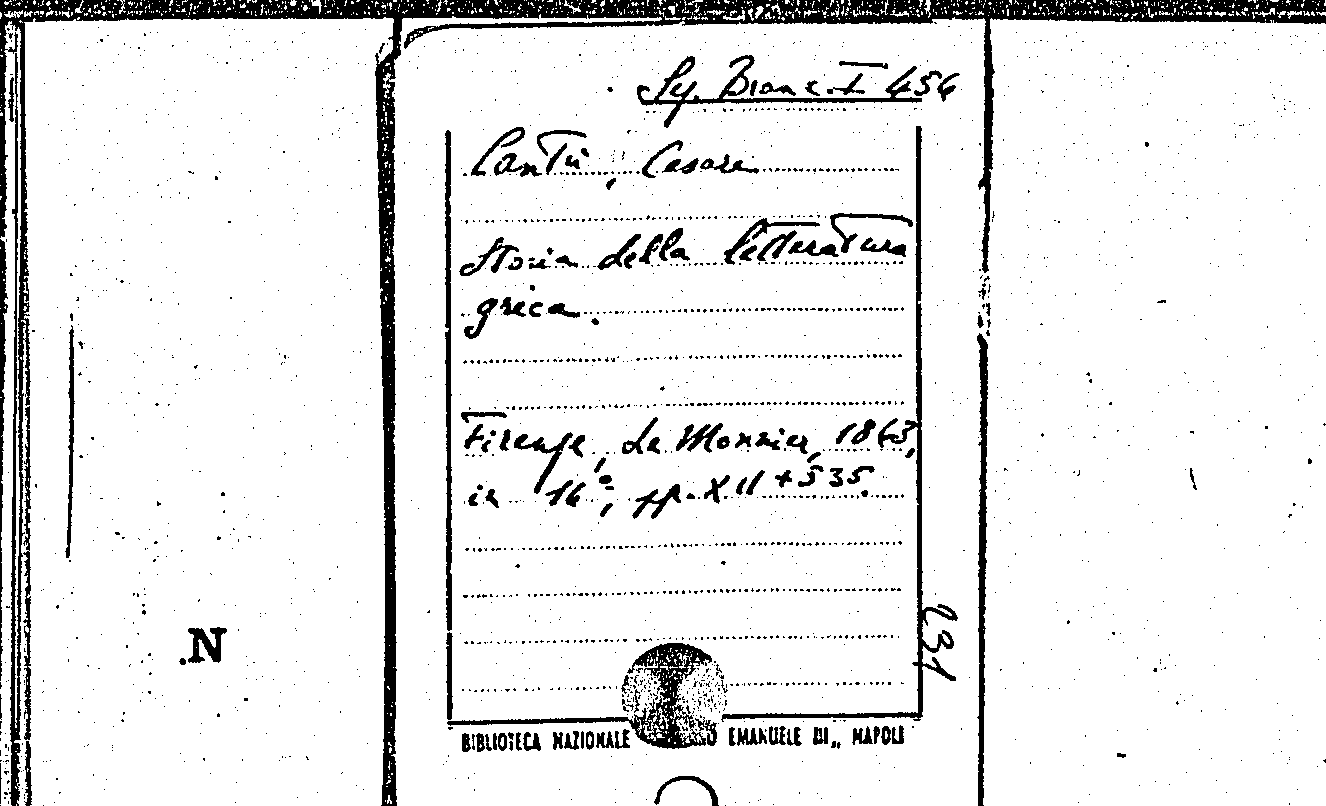 Sy. Branc. I 454
Cantù, Cesare
Storia della letteratura
greca.
Firenze, Le Monnier, 1863,
in 16°, pp. XII + 535.
231
.N
BIBLIOTECA NAZIONALE EMANUELE III„ NAPOLI